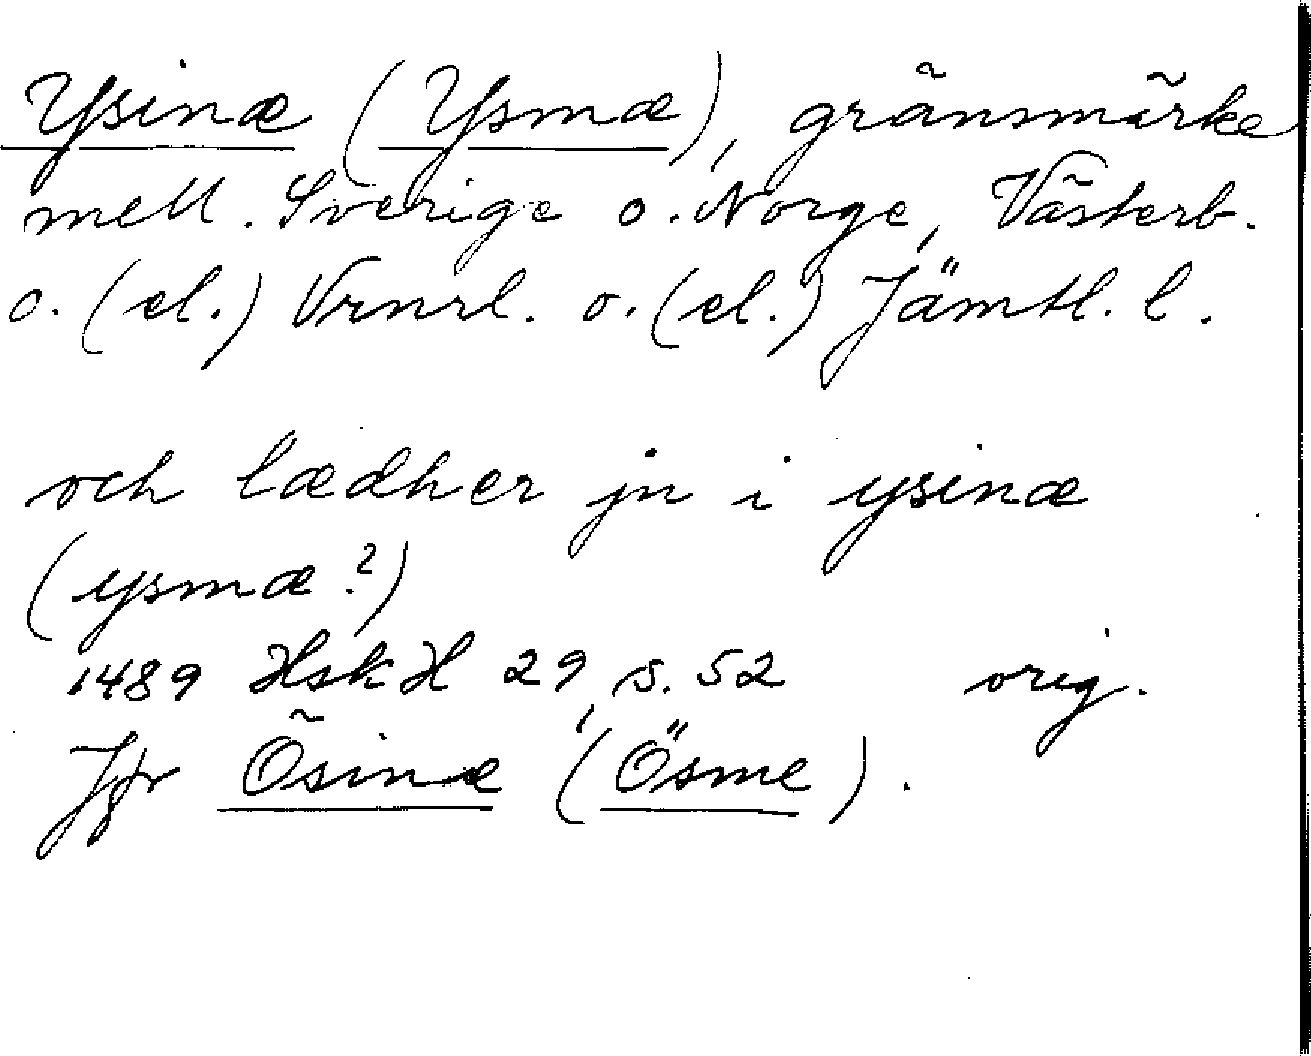 Ysinæ (Ysmæ), gränsmärke
mell. Sverige o. Norge, Västerb.
o. (el.) Vrmrl. o. (el.) Jämtl. l.
och lædher jn i ysinæ
(ysmæ?)
1489 HskH 29, s. 52 orig.
Jfr Ösinæ (Ösme).